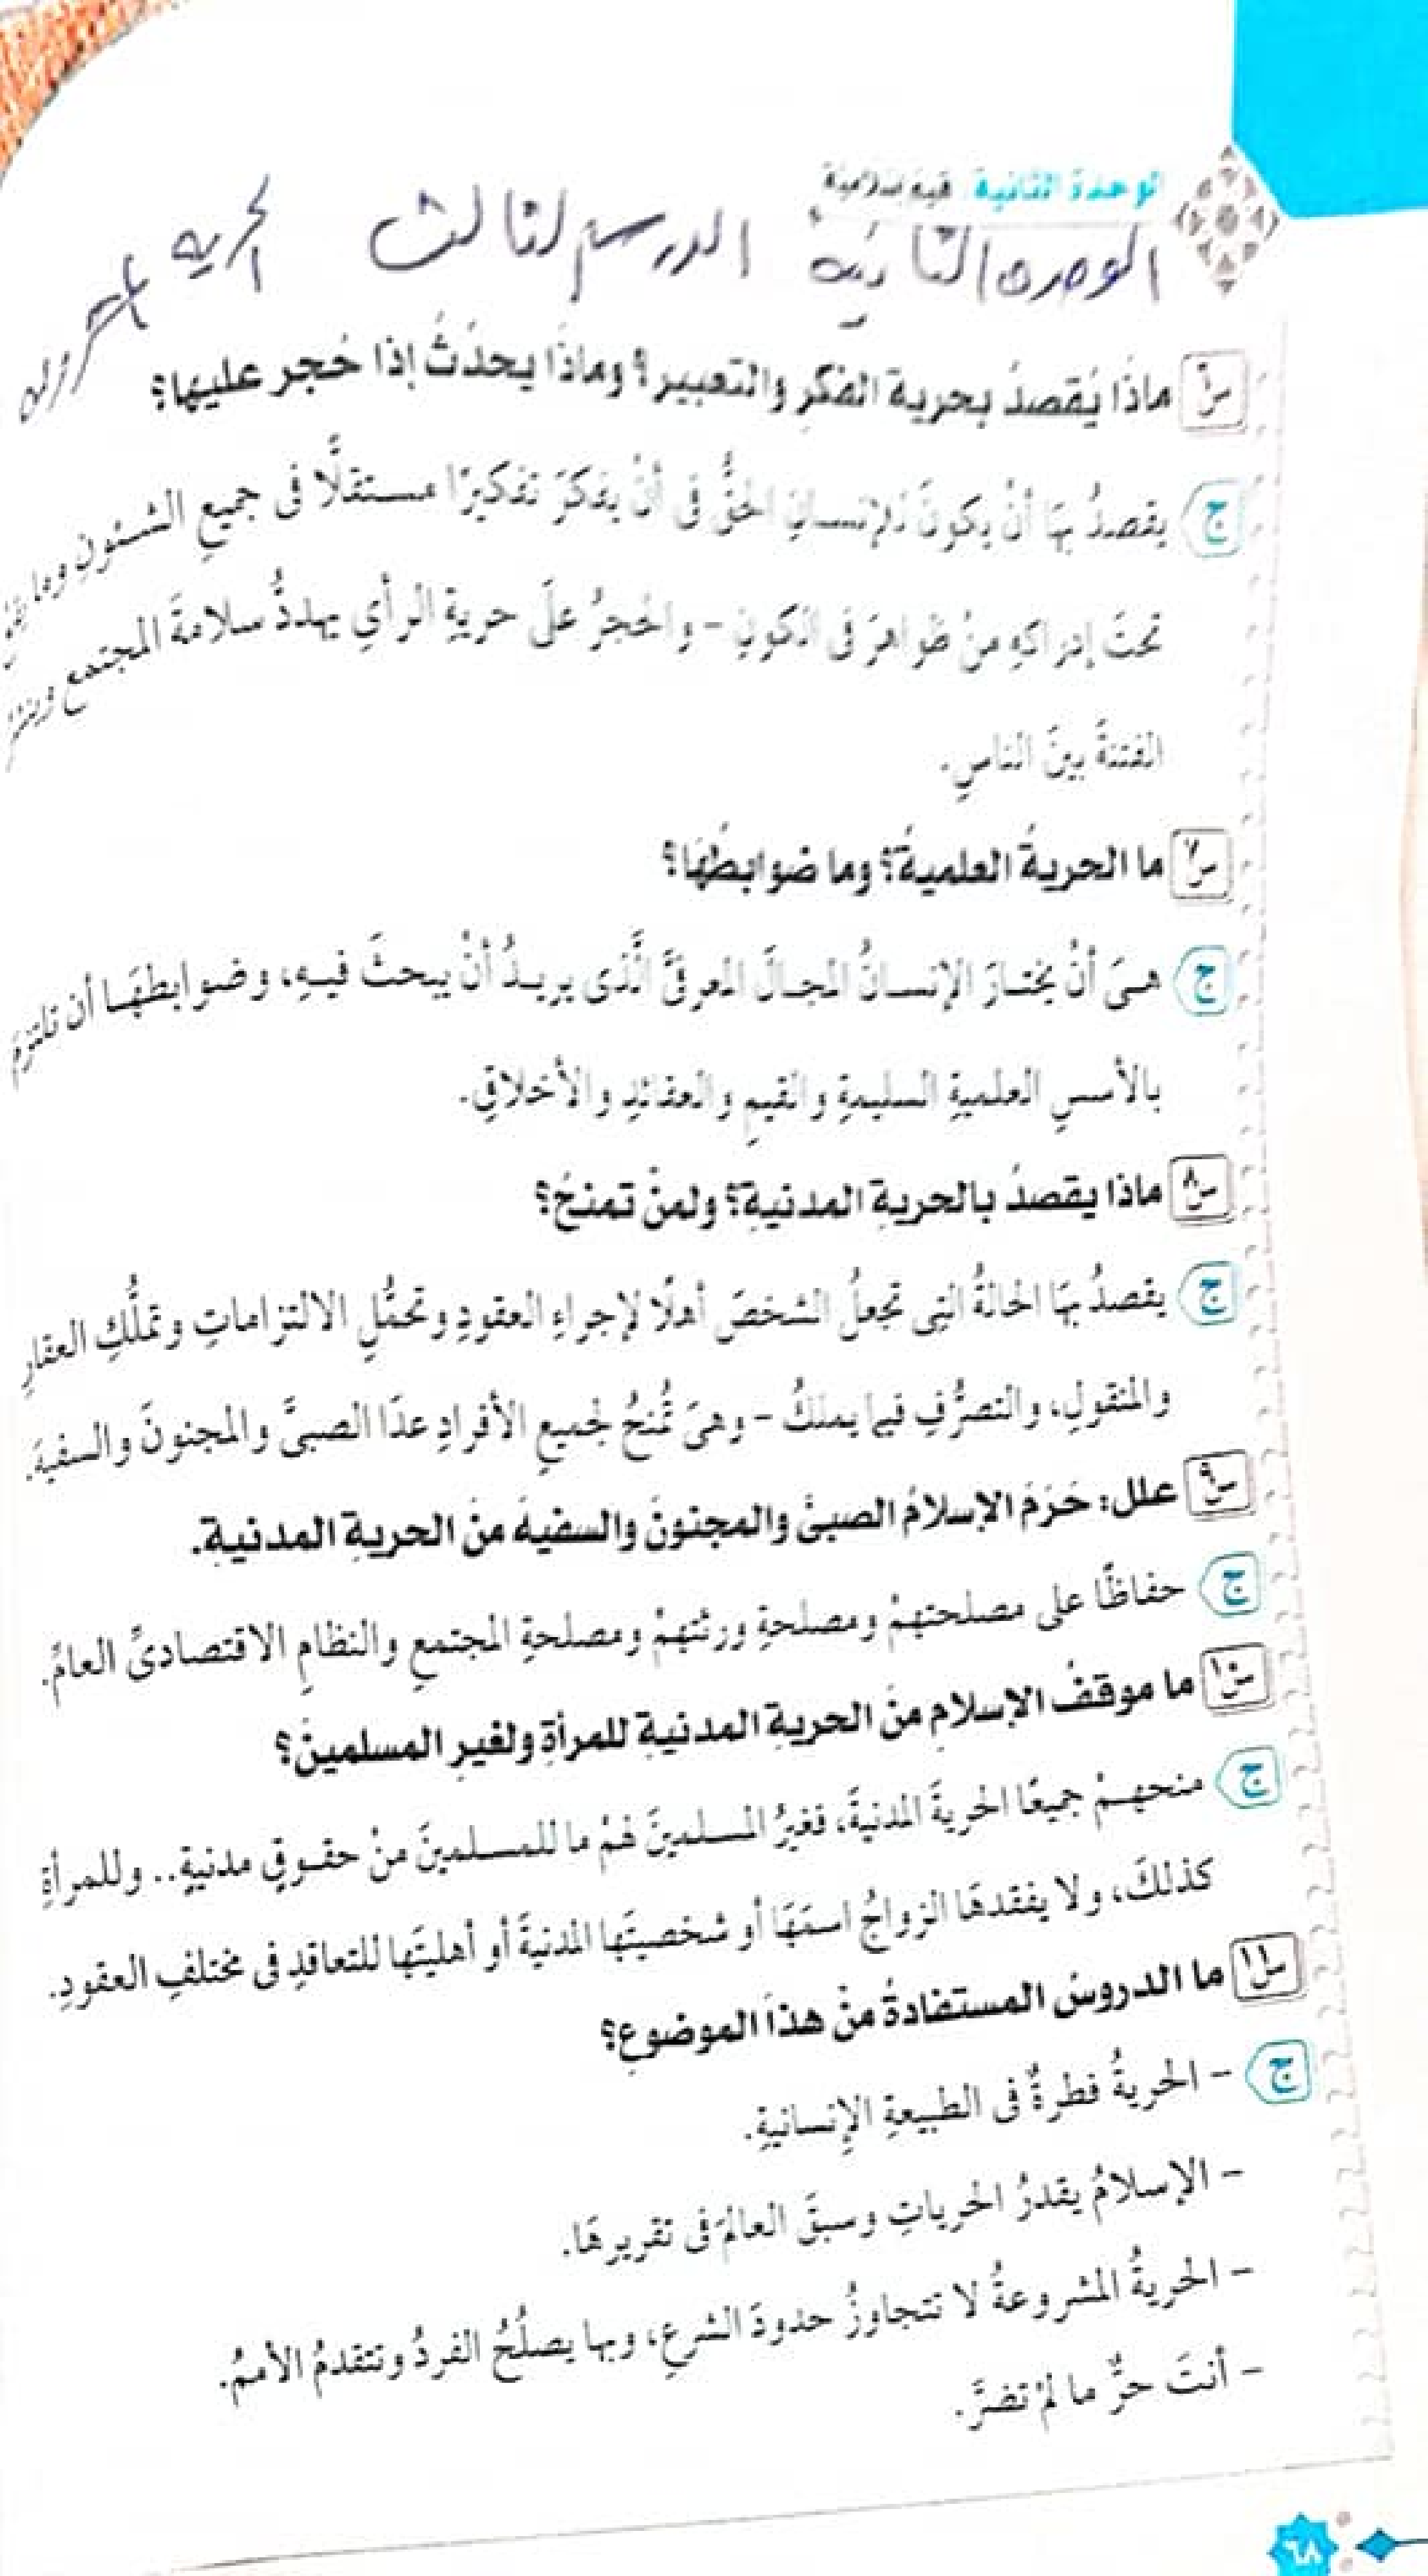 الوحدة الثانية: قيم إسلامية
الوحدة الثانية الدرس الثالث الحرية
س٦ ماذا يُقصدُ بحريةِ الفكرِ والتعبيرِ؟ وماذا يحدُثُ إذا حُجر عليها؟
ج يقصدُ بهَا أنْ يكونَ للإنسانِ الحقُّ فى أنْ يفكرَ تفكيرًا مستقلًّا فى جميعِ الشئونِ وما يقعُ
تحتَ إدراكهِ منْ ظواهرَ فى الكونِ - والحجرُ علَى حريةِ الرأي يهددُّ سلامةَ المجتمعِ وينشرُ
الفتنةَ بينَ الناسِ.
س٧ ما الحريةُ العلميةُ؟ وما ضوابطُهَا؟
ج هىَ أنْ يختارَ الإنسانُ المجالَ المعرفىَّ الَّذى يريدُ أنْ يبحثَ فيهِ، وضوابطهَا أن تلتزمَ
بالأسسِ العلميةِ السليمةِ والقيمِ والعقائدِ والأخلاقِ.
س٨ ماذا يقصدُ بالحريةِ المدنيةِ؟ ولمنْ تمنحُ؟
ج يقصدُ بهَا الحالةُ التِى تجعلُ الشخصَ أهلًا لإجراءِ العقودِ وتحمُّلِ الالتزاماتِ وتملُّكِ العقارِ
والمنقولِ، والتصرُّفِ فيما يملكُ - وهىَ تُمنحُ لجميعِ الأفرادِ عدَا الصبىَّ والمجنونَ والسفيهَ.
س٩ علل: حَرَمَ الإسلامُ الصبىَّ والمجنونَ والسفيهَ منَ الحريةِ المدنيةِ.
ج حفاظًا على مصلحتهمْ ومصلحةِ ورثتهمْ ومصلحةِ المجتمعِ والنظامِ الاقتصادىِّ العامِّ.
س١٠ ما موقفُ الإسلامِ منَ الحريةِ المدنيةِ للمرأةِ ولغيرِ المسلمينَ؟
ج منحهمْ جميعًا الحريةَ المدنيةَ، فغيرُ المسلمينَ لهمْ ما للمسلمينَ منْ حقوقٍ مدنيةٍ.. وللمرأةِ
كذلكَ، ولا يفقدهَا الزواجُ اسمَهَا أو شخصيتَها المدنيةَ أو أهليتَها للتعاقدِ فى مختلفِ العقودِ.
س١١ ما الدروسُ المستفادةُ منْ هذا الموضوعِ؟
ج - الحريةُ فطرةٌ فى الطبيعةِ الإنسانيةِ.
- الإسلامُ يقدرُ الحرياتِ وسبقَ العالمَ فى تقريرِهَا.
- الحريةُ المشروعةُ لا تتجاوزُ حدودَ الشرعِ، وبها يصلُحُ الفردُ وتتقدمُ الأممُ.
- أنتَ حرٌّ ما لمْ تضرَّ.
٦٨